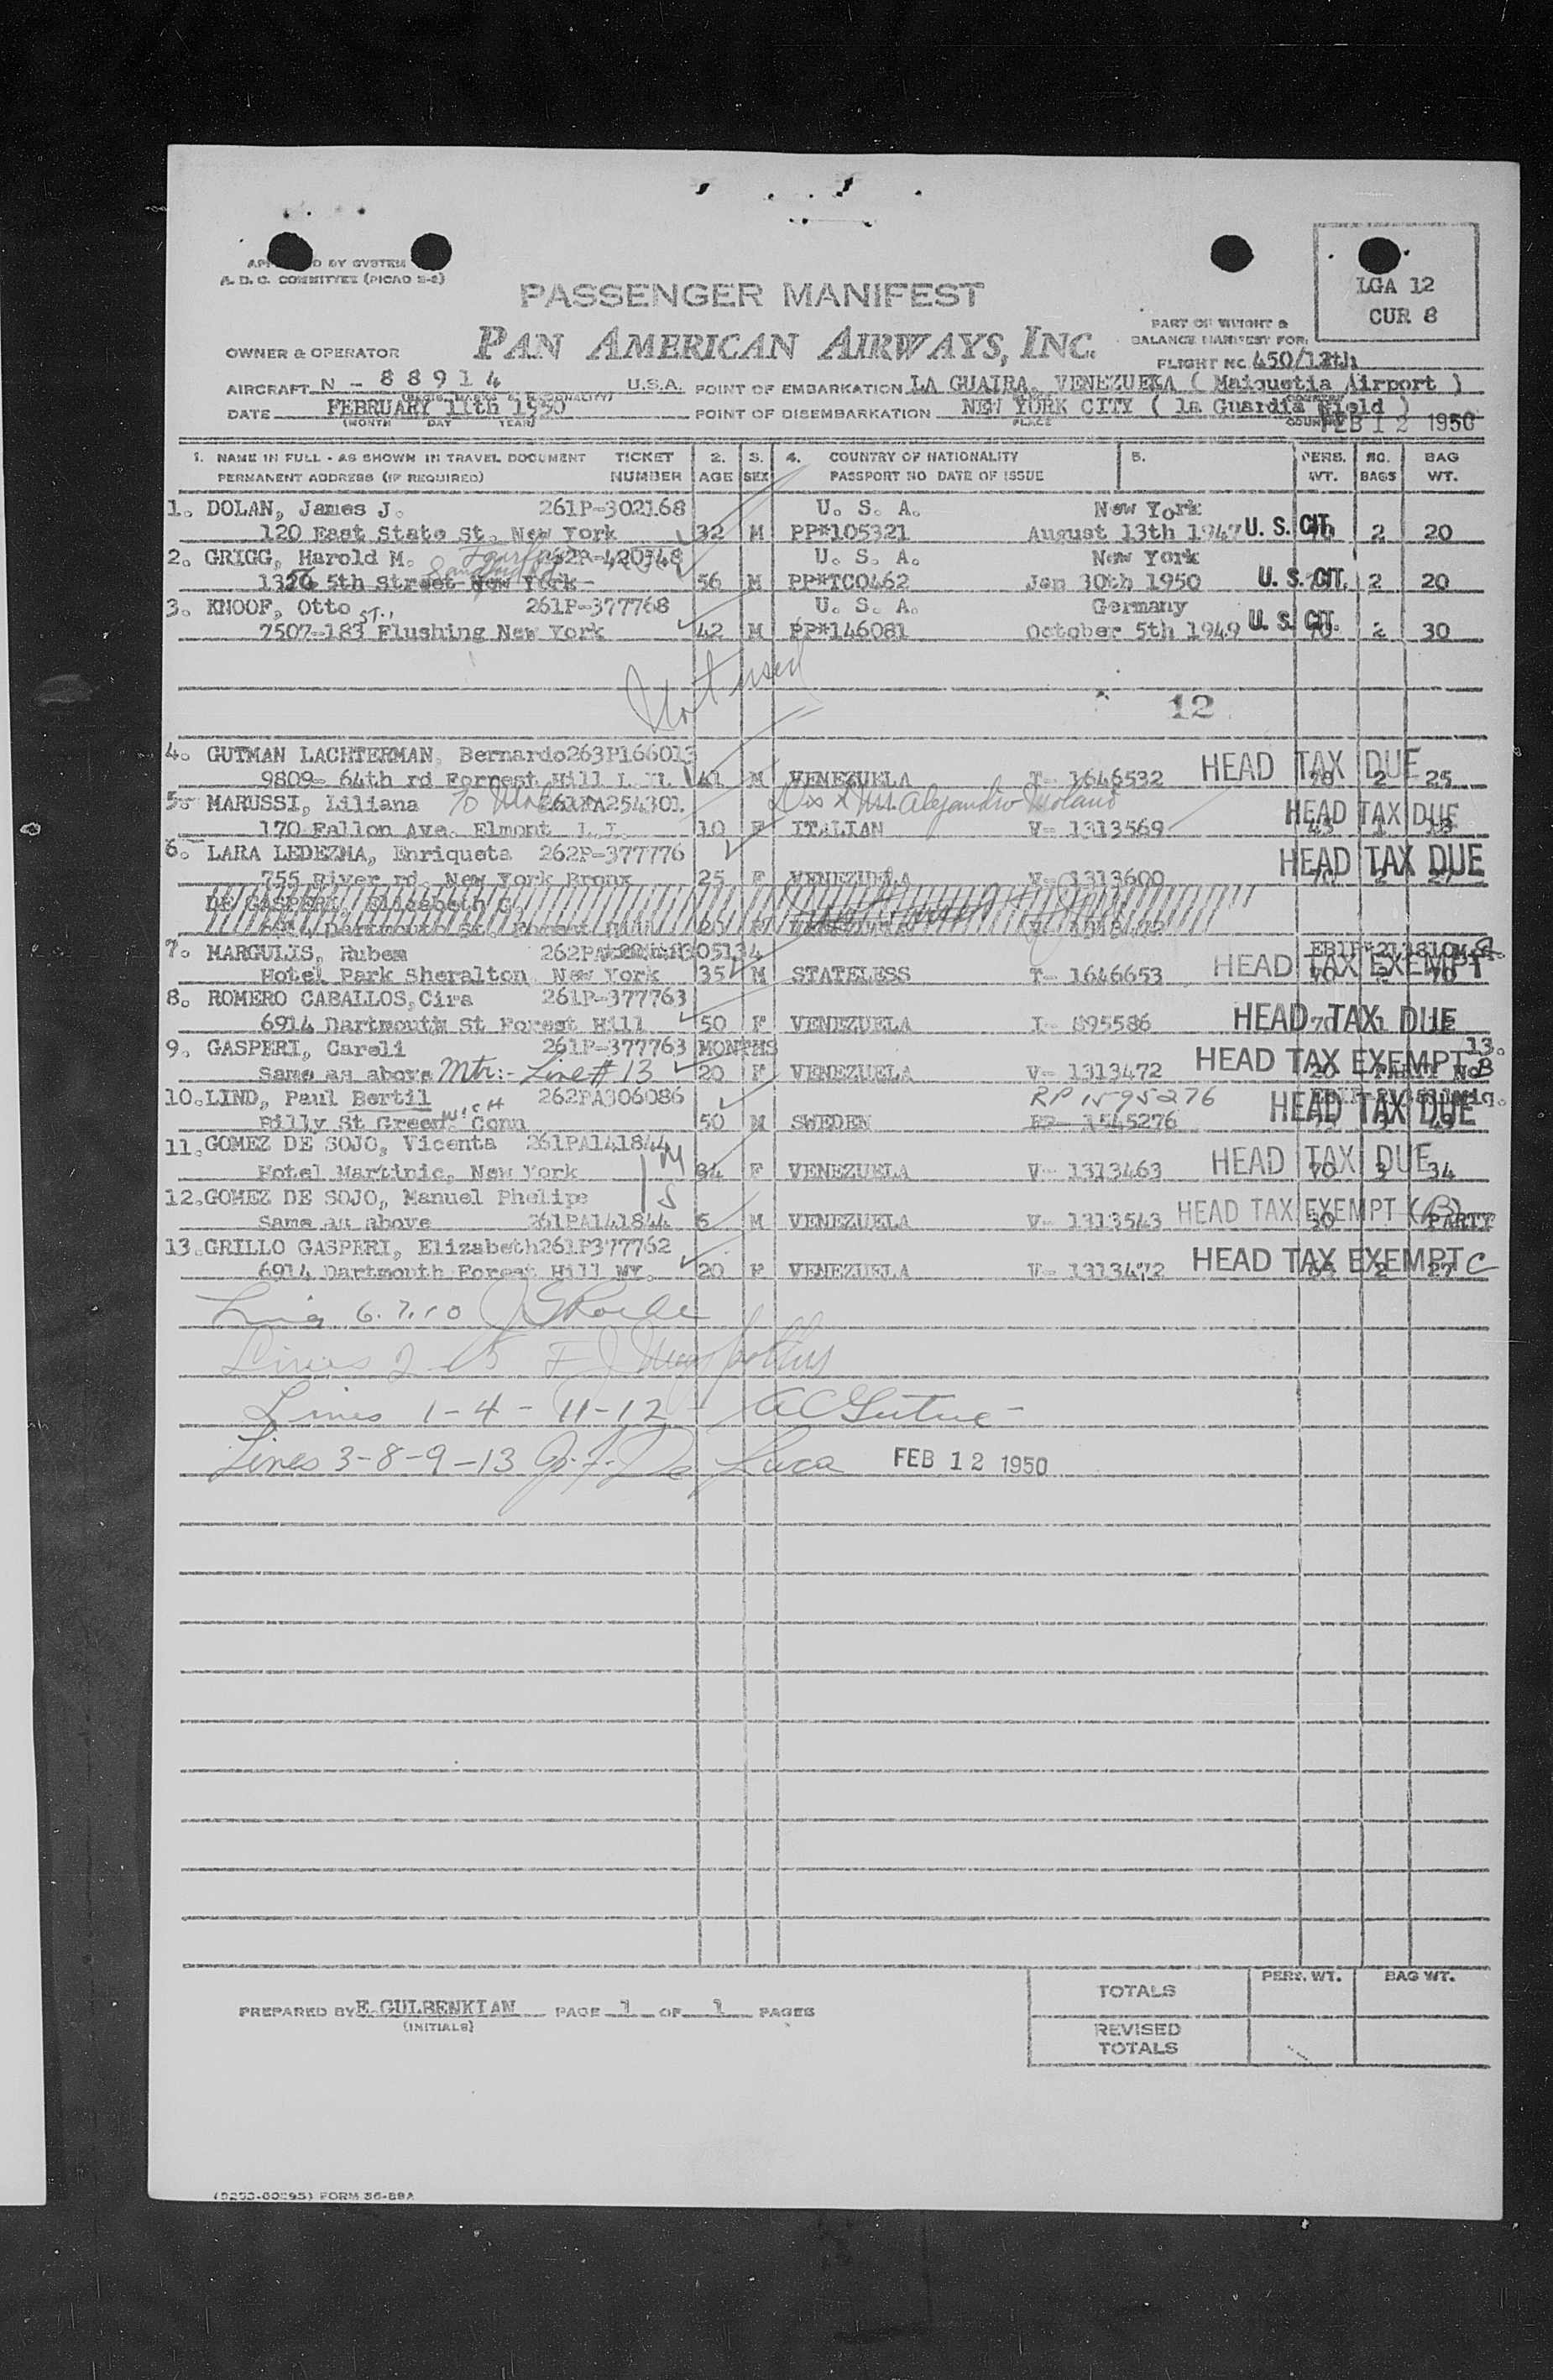 A. D. C. COMMITTEE (PICAO 2-2)
LGA 12
CUR 8
PASSENGER MANIFEST
PAN AMERICAN AIRWAYS, INC.
PART OF WEIGHT &
BALANCE MANIFEST FOR
OWNER & OPERATOR
FLIGHT NO 450/12th
AIRCRAFT N - 88914 U.S.A. POINT OF EMBARKATION LA GUAIRA, VENEZUELA ( Maiquetia Airport )
DATE FEBRUARY 11th 1950 POINT OF DISEMBARKATION NEW YORK CITY ( la Guardia Field )
(MONTH DAY YEAR) PLACE COUNTRY FEB 12 1950
1. NAME IN FULL - AS SHOWN IN TRAVEL DOCUMENT TICKET 2. 3. 4. COUNTRY OF NATIONALITY 5. PERS. NO. BAG
PERMANENT ADDRESS (IF REQUIRED) NUMBER AGE SEX PASSPORT NO DATE OF ISSUE WT. BAGS WT.
1. DOLAN, James J. 261P-302168 U. S. A. New York
120 East State St. New York 32 M PP*105321 August 13th 1947 U. S. CIT. 2 20
2. GRIGG, Harold M. 262P-420348 U. S. A. New York
5th Street New York 56 M PP*TC0462 Jan 30th 1950 U. S. CIT. 2 20
3. KNOOF, Otto ST., 261P-377768 U. S. A. Germany
7507-183 Flushing New York 42 M PP*146081 October 5th 1949 U. S. CIT. 70 2 30
Not used
12
4. GUTMAN LACHTERMAN, Bernardo 263P166013
9809- 64th rd Forrest Hill L.I. 41 M VENEZUELA T- 1646532 HEAD TAX DUE 78 2 25
5. MARUSSI, Liliana 261PA254301 Alejandro
170 Fallon Ave. Elmont L.I. 10 F ITALIAN V- 1313569 HEAD TAX DUE
6. LARA LEDEZMA, Enriqueta 262P-377776
755 River rd. New York Bronx 25 F VENEZUELA V- 1313600 HEAD TAX DUE
DE GASPERI, Elizabeth C
7. MARGULIS, Rubem 262PA305134
Hotel Park Sheralton New York 35 M STATELESS T- 1646653 HEAD TAX EXEMPT 70 2 70
8. ROMERO CABALLOS, Cira 261P-377763
6914 Dartmouth St Forest Hill 50 F VENEZUELA I- 895586 HEAD TAX DUE 70 1
9. GASPERI, Careli 261P-377763 MONTHS 13.
Same as above Mtr:- Line # 13 20 F VENEZUELA V- 1313472 HEAD TAX EXEMPT B
10. LIND, Paul Bertil 262PA306086 RP 1595276
Billy St Greenwich Conn 50 M SWEDEN RP- 1545276 HEAD TAX DUE
11. GOMEZ DE SOJO, Vicenta 261PA141844
Hotel Martinic, New York 34 F VENEZUELA V- 1313463 HEAD TAX DUE 70 3 34
12. GOMEZ DE SOJO, Manuel Phelipe
Same as above 261PA141844 6 M VENEZUELA V- 1313543 HEAD TAX EXEMPT (B) 30 PARTY
13. GRILLO GASPERI, Elizabeth 261P377762
6914 Dartmouth Forest Hill NY. 20 F VENEZUELA V- 1313472 HEAD TAX EXEMPT C 2 27
6. 7. 10
Lines 2
Lines 1-4-11-12
Lines 3-8-9-13 J. F. De Luca FEB 12 1950
PERS. WT. BAG WT.
TOTALS
PREPARED BY E. GULBENKIAN PAGE 1 OF 1 PAGES
(INITIALS)
REVISED
TOTALS
FORM 36-88A